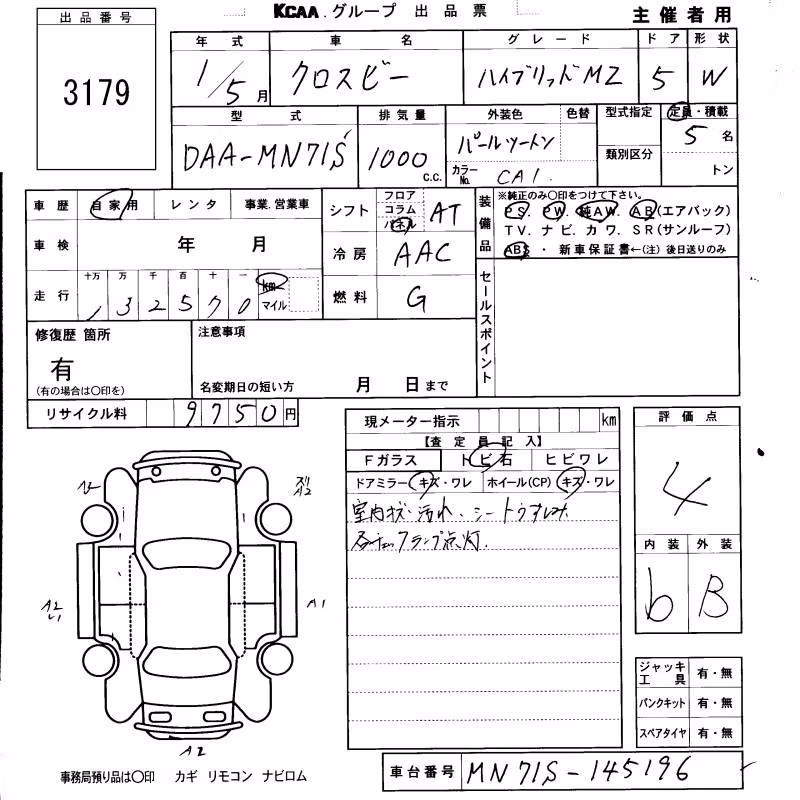 KCAA グループ 出品票
主催者用
出品番号
3179
年式 車名 グレード ドア 形状
1/5月 クロスビー ハイブリッドMZ 5 W
型式 排気量 外装色 色替 型式指定 定員・積載
DAA-MN71S 1000 c.c. パールツートン 類別区分 5名
カラーNo. CA1. トン
車歴 自家用 レンタ 事業.営業車
シフト フロア コラム パネル AT
装備品 ※純正のみ〇印をつけて下さい。
PS. PW. 純AW. AB(エアバック)
TV. ナビ. カワ. SR(サンルーフ)
ABS ・ 新車保証書←(注) 後日送りのみ
車検 年 月
冷房 AAC
走行 十万 万 千 百 十 一
132570 km マイル
燃料 G
セールスポイント
修復歴 箇所
有
(有の場合は〇印を)
注意事項
名変期日の短い方 月 日まで
リサイクル料 9750円
現メーター指示 km
【査定員記入】
Fガラス トビ石 ヒビワレ
ドアミラー(キズ・ワレ ホイール(CP) キズ・ワレ
室内キズ・汚れ、シートウすレみ
各チェックランプ点灯.
評価点
4
内装 外装
b B
A2
A2
A1
A2
ジャッキ工具 有・無
パンクキット 有・無
スペアタイヤ 有・無
事務局預り品は〇印 カギ リモコン ナビロム
車台番号 MN71S-145196